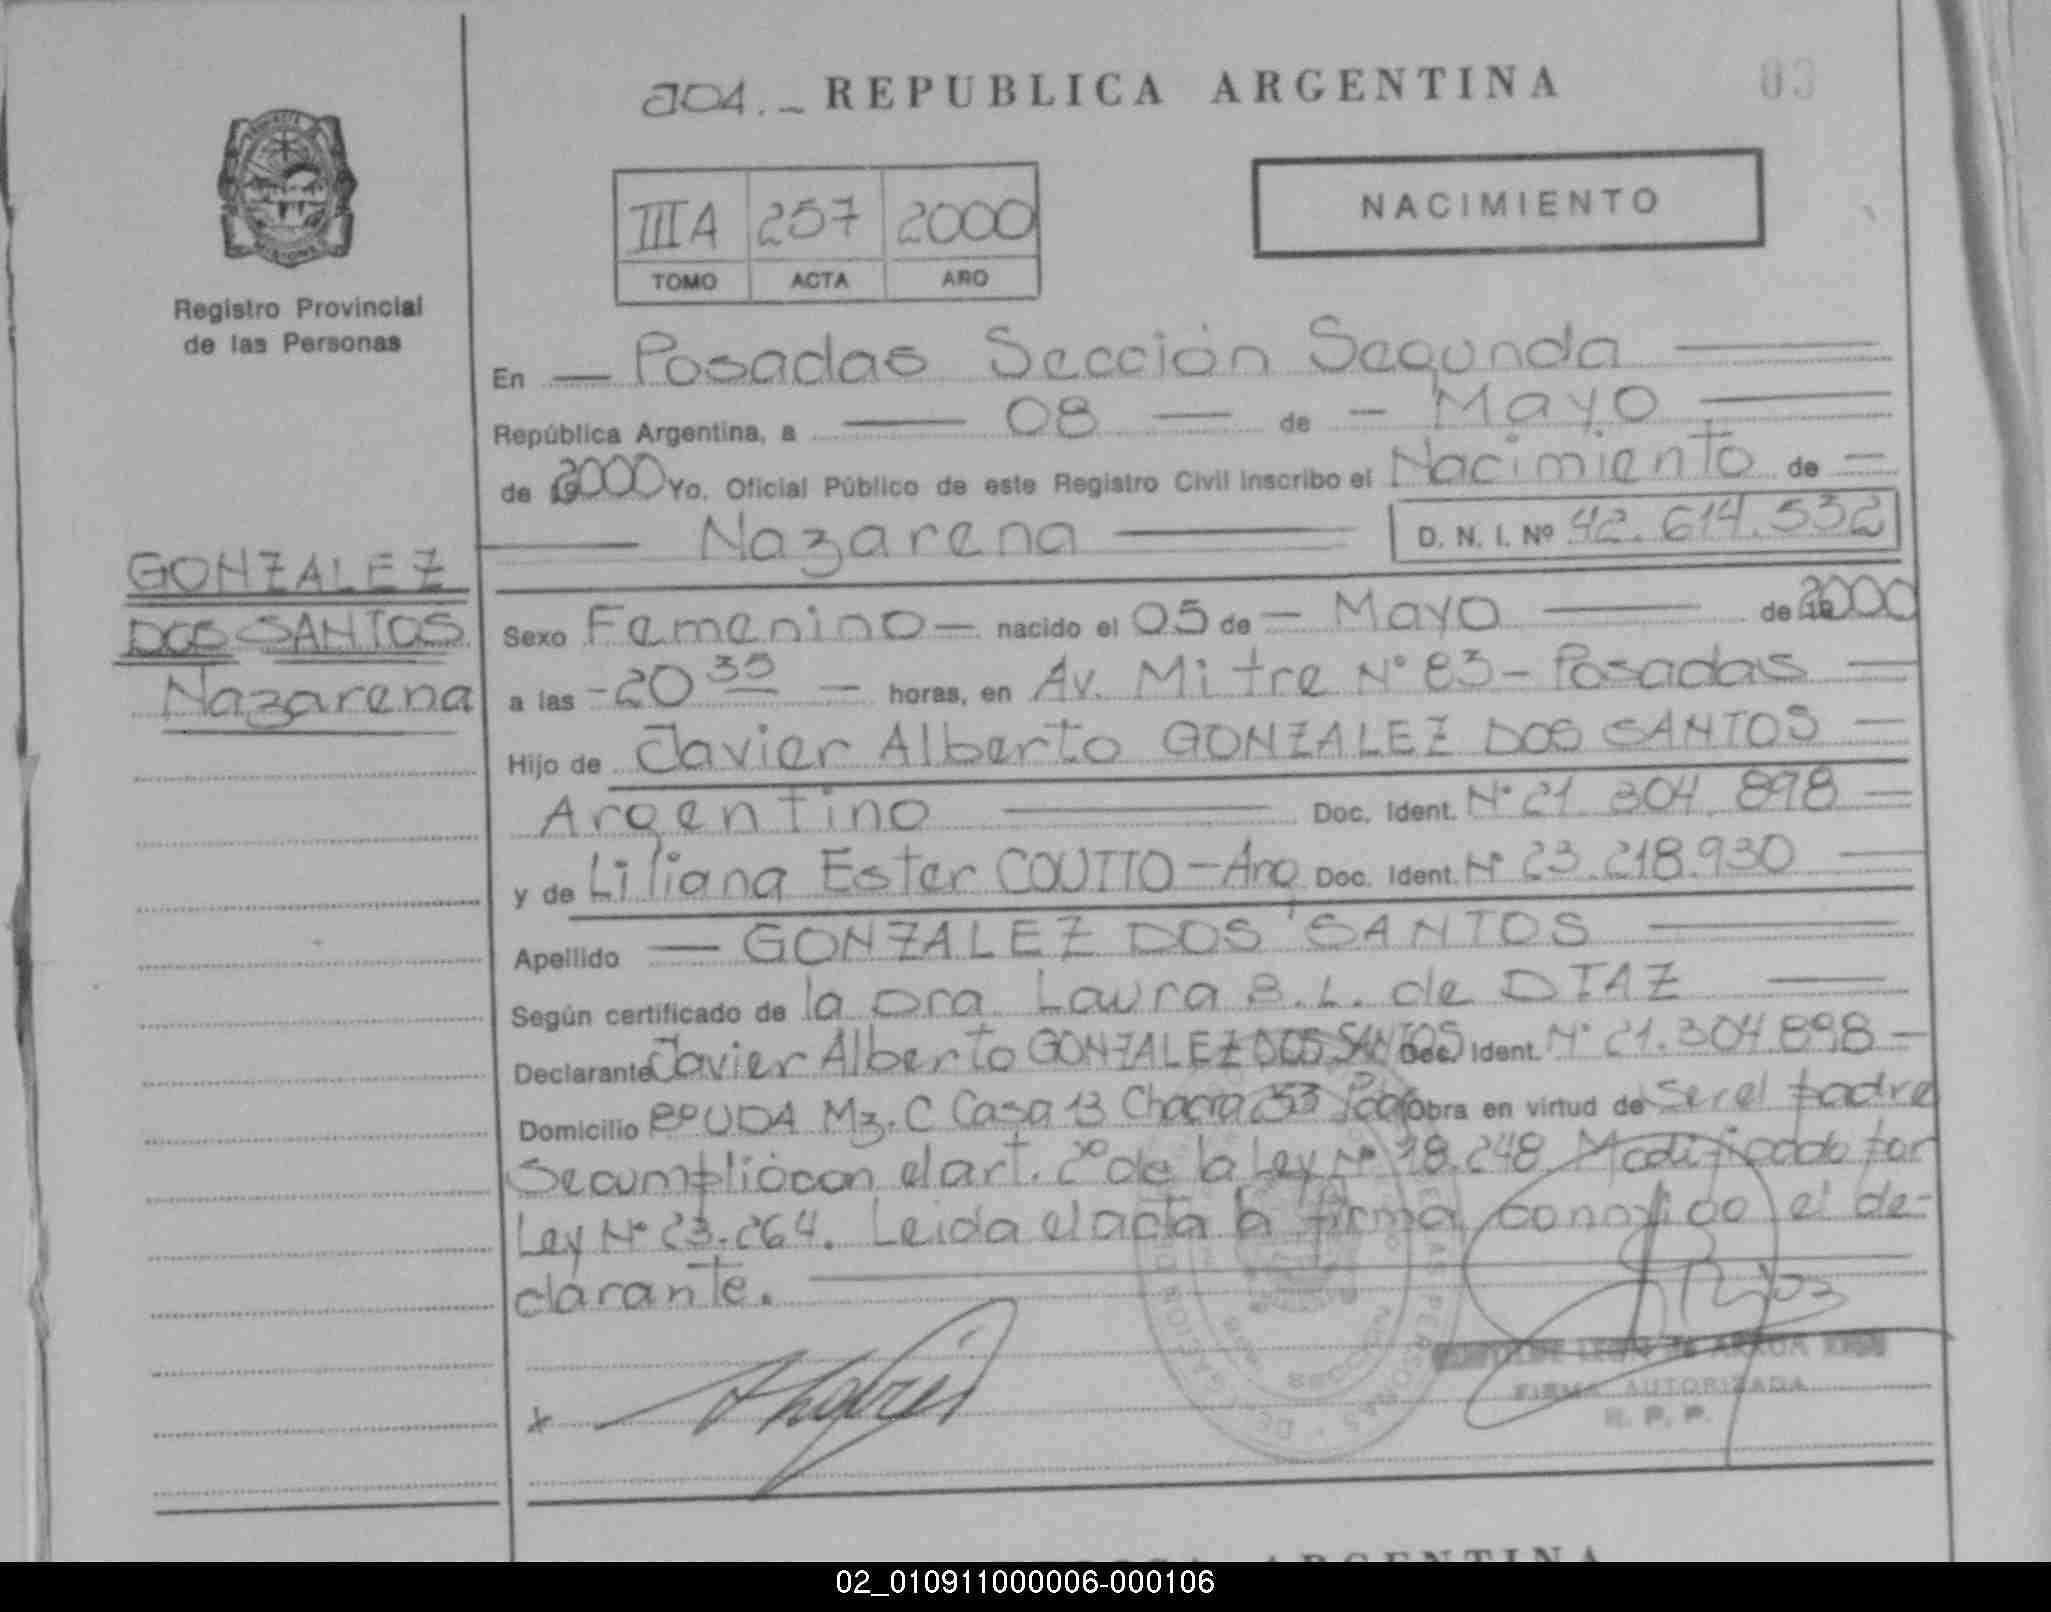 204._ REPUBLICA ARGENTINA 03
III A 257 2000
TOMO ACTA AÑO
NACIMIENTO
Registro Provincial
de las Personas
En — Posadas Sección Segunda —
República Argentina, a — 08 — de — Mayo —
de 2000 Yo, Oficial Público de este Registro Civil inscribo el Nacimiento de —
— Nazarena — D. N. I. Nº 42.614.532
GONZALEZ
DOS SANTOS
Nazarena
Sexo Femenino — nacido el 05 de — Mayo — de 2000
a las - 20 35 — horas, en Av. Mitre Nº 83 - Posadas —
Hijo de Javier Alberto GONZALEZ DOS SANTOS —
Argentino — Doc. Ident. Nº 21.304.898 —
y de Liliana Ester COUTTO - Arg. Doc. Ident. Nº 23.218.930 —
Apellido — GONZALEZ DOS SANTOS —
Según certificado de la Dra Laura B.L. de DIAZ —
Declarante Javier Alberto GONZALEZ DOS SANTOS Doc. Ident. Nº 21.304.898 —
Domicilio Bº UDA Mz. C Casa 13 Chacra 253 Obra en virtud de Ser el padre
Se cumplió con el art. 2º de la Ley Nº 18.248 Modificado por
Ley Nº 23.264. Leida el acta la firma conmigo el de-
clarante. —
x
FIRMA AUTORIZADA
R. P. P.
ARGENTINA
02_010911000006-000106